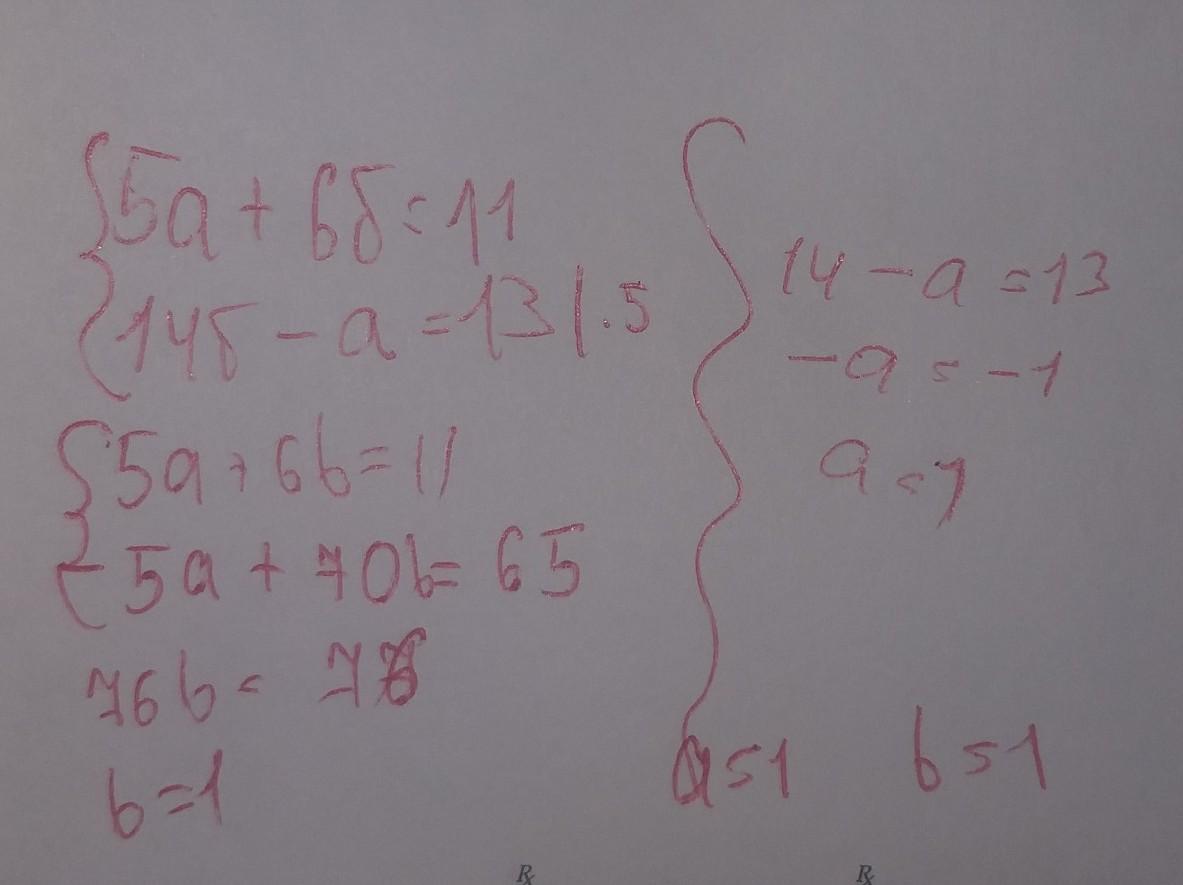 5a + 6б = 11
14б - a = 13 | · 5
5a + 6b = 11
-5a + 70b = 65
76b = 76
b = 1
14 - a = 13
-a = -1
a = 1
a = 1 b = 1
℞ ℞